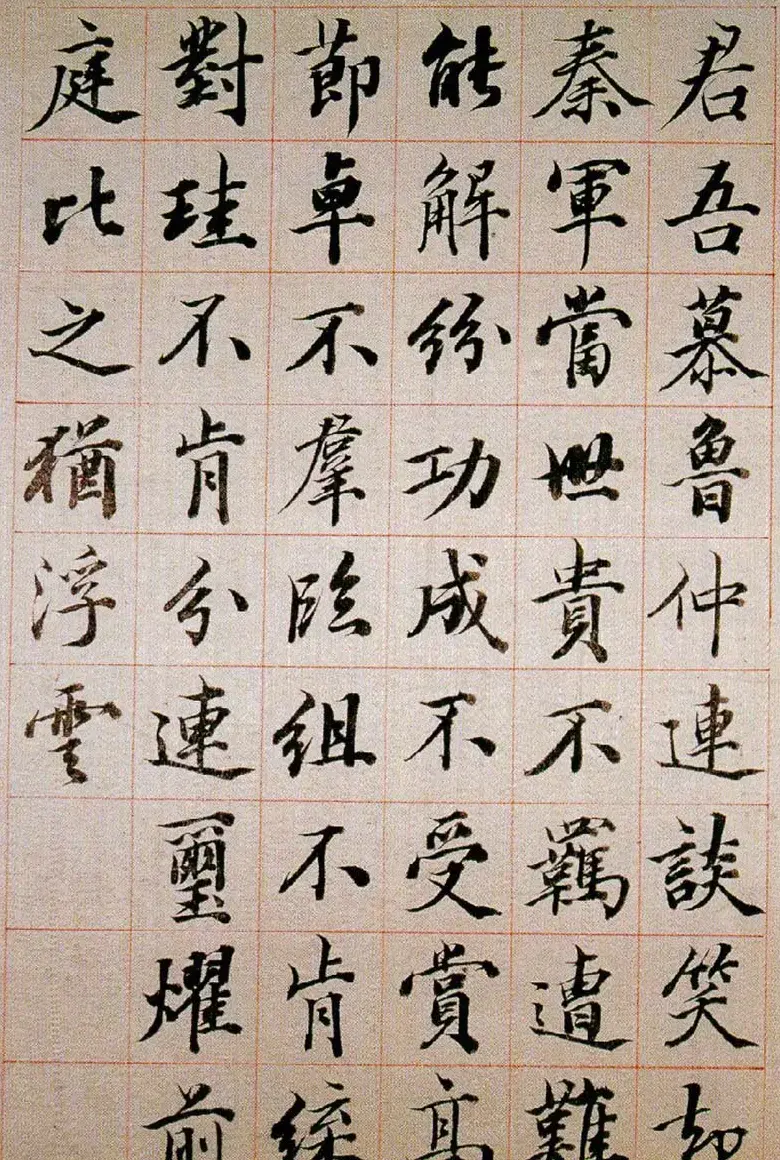 君吾慕魯仲連談笑却
秦軍當世貴不羈遭難
能解紛功成不受賞高
節卓不羣臨組不肯緤
對珪不肯分連璽燿前
庭比之猶浮雲